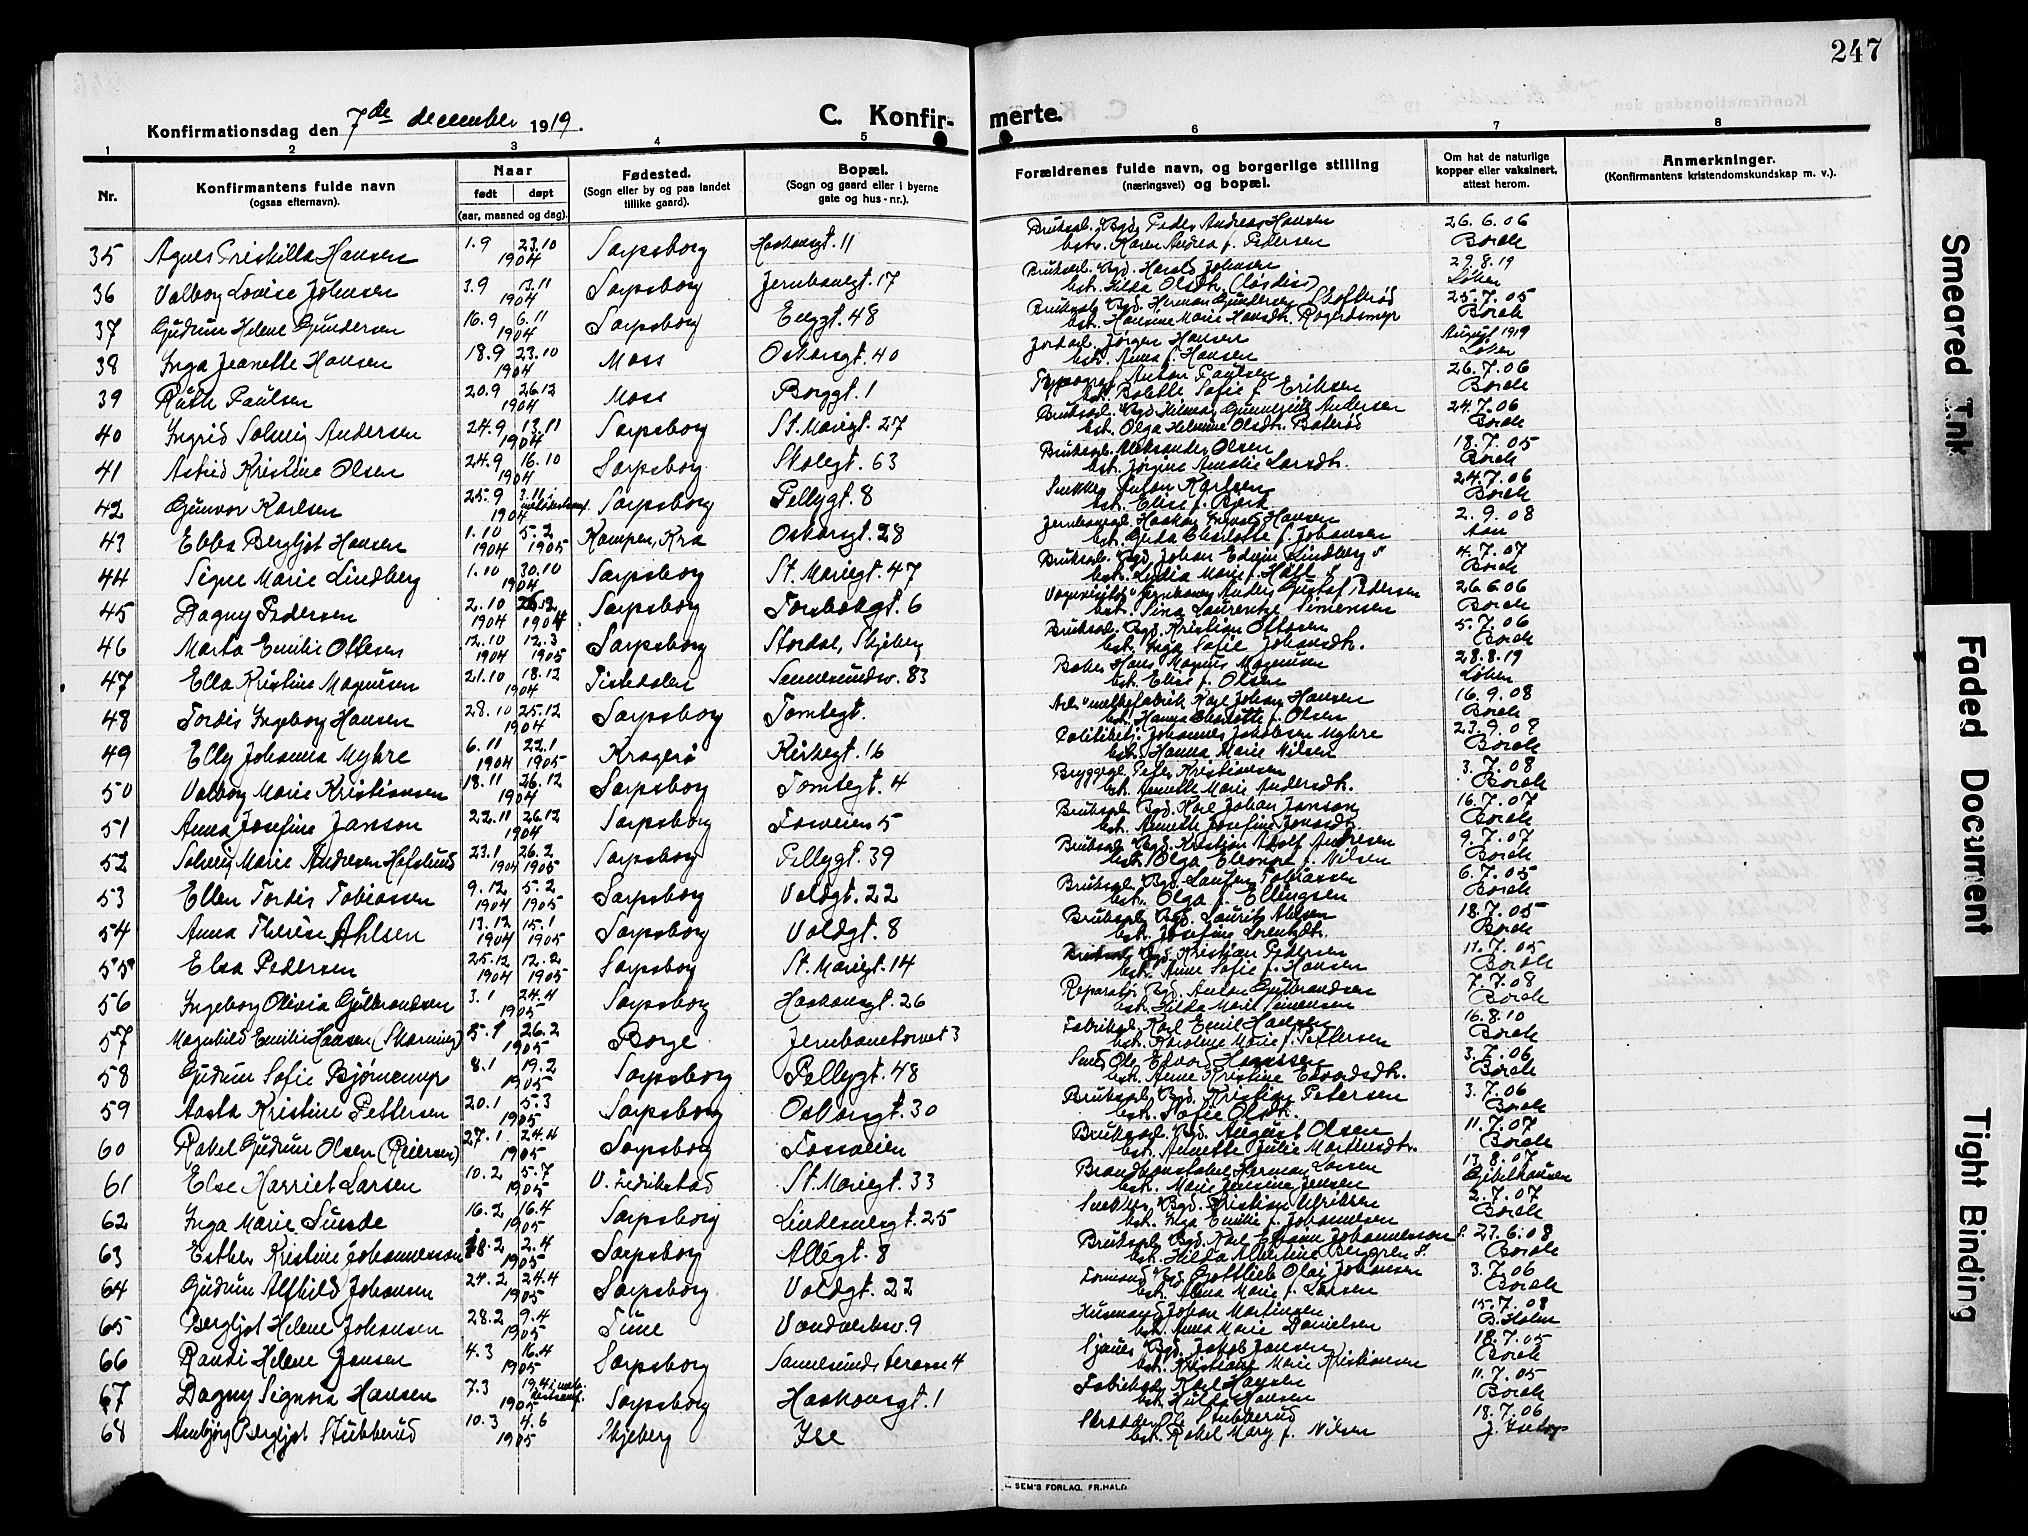 247
Konfirmationsdag den 7de december 1919.
C. Konfirmerte.
1 2 3 4 5 6 7 8
Nr.
Konfirmantens fulde navn
(ogsaa efternavn).
Naar
født døpt
(aar, maaned og dag).
Fødested.
(Sogn eller by og paa landet
tillike gaard).
Bopæl.
(Sogn og gaard eller i byerne
gate og hus-nr.).
Forældrenes fulde navn, og borgerlige stilling
(næringsvei) og bopæl.
Om hat de naturlige
kopper eller vaksinert,
attest herom.
Anmerkninger.
(Konfirmantens kristendomskundskap m. v.).
35 Agnes Priskilla Hansen 1.9 23.10 1904 Sarpsborg Haakonsgt. 11 Bruksarb. Peder Andreas Hansen 26.6.06
bstr. Karen Andrea f. Pedersen Borch
36 Valborg Lovise Johnsen 3.9 13.11 1904 Sarpsborg Jernbanegt. 17 Harald Johnsen 29.8.19
bstr. Hilda Olsdtr. Løken
37 Gudrun Helene Gundersen 16.9 6.11 1904 Sarpsborg Enggt. 48 Herman Gundersen 25.7.05
bstr. Hansine Marie Hansdtr. Borch
38 Inga Jeanette Hansen 18.9 23.10 1904 Moss Oskarsgt. 40 Jordarb. Jørgen Hansen August 1919
bstr. Anna f. Hansen Løken
39 Ruth Paulsen 20.9 26.12 1904 Moss Borggt. 1 Typograf Anton Paulsen 26.7.06
bst. Bolette Sofie f. Eriksen Borch
40 Ingrid Solveig Andersen 24.9 13.11 1904 Sarpsborg St. Mariegt. 27 Andersen 24.7.06
bst. Olga Helmine Olsdtr. Borch
41 Astrid Kristine Olsen 24.9 16.10 1904 Sarpsborg Skolegt. 63 Bruksarb. Aleksander Olsen 18.7.05
bst. Jørgine Amalie Larsdtr. Borch
42 Gunvor Karlsen 25.9 3.11 1904 Sarpsborg Pellygt. 8 Snekker Karlsen 24.7.06
bst. Elise f. Borch
43 Ebba Bergljot Hansen 1.10 1904 5.2 1905 Kampen, Kra Oskarsgt. 28 Hansen 2.9.08
bst. Gerda Charlotte f. Johansen
44 Signe Marie Lindberg 1.10 30.10 1904 Sarpsborg St. Mariegt. 47 Bruksarb. Bgd. Johan Edvin Lindberg 4.7.07
bst. Lydia Marie f. Borch
45 Dagny Pedersen 2.10 1904 1904 Sarpsborg Torsbekgt. 6 Anders Gustaf Pedersen 26.6.06
bst. Sina Laurentze Simensen Borch
46 Marta Emilie Ottesen 12.10 1904 12.3 1905 Sarpsborg Stordal, Skjeberg Bruksarb. Bgd. Kristian Ottesen 5.7.06
bst. Inga Sofie Johansdtr. Borch
47 Ella Kristine Magnusen 21.10 18.12 1904 Tistedalen Sannesundsv. 83 Baker Hans Magnus Magnusen 28.8.19
bst. Elise f. Olsen Løken
48 Tordis Ingeborg Hansen 28.10 25.12 1904 Sarpsborg Tomtegt. Karl Johan Hansen 16.9.08
bst. Hanna Charlotte f. Olsen Borch
49 Elly Johanna Myhre 6.11 1904 22.1 1905 Kragerø Kirkegt. 16 Politibetj. Johannes Jakobsen Myhre 23.9.08
bst. Hanna Marie Nilsen Borch
50 Valborg Marie Kristiansen 18.11 26.12 1904 Sarpsborg Tomtegt. 4 Bryggearb. Peter Kristiansen 3.7.08
bst. Annette Marie Andersdtr. Borch
51 Anna Josefine Janson 22.11 26.12 1904 Sarpsborg Fosveien 5 Bruksarb. Bgd. Karl Johan Janson 16.7.07
bst. Annette Josefine Borch
52 Solveig Marie Andresen Hafslund 23.1 1904 26.2 1905 Sarpsborg Pellygt. 39 Bruksarb. Bgd. Kristian Adolf Andresen 9.7.07
bst. Olga Eleonore f. Nilsen Borch
53 Ellen Tordis Tobiassen 9.12 1904 5.2 1905 Sarpsborg Voldgt. 22 Bruksarb. Bgd. Tobiassen 6.7.05
bst. Olga f. Ellingsen Borch
54 Anna Therese Ahlsen 13.12 1904 15.1 1905 Sarpsborg Voldgt. 8 Bruksarb. Bgd. Laurits Ahlsen 18.7.05
bst. Josefine Lorentzdtr. Borch
55 Elsa Pedersen 25.12 1904 12.2 1905 Sarpsborg St. Mariegt. 14 Bruksarb. Bgd. Kristian Pedersen 11.7.05
bst. Anne Sofie f. Hansen Borch
56 Ingeborg Olivia Gulbrandsen 3.1 24.4 1905 Sarpsborg Haakonsgt. 26 Reparatør Bgd. Anton Gulbrandsen 7.7.08
bst. Hilda Marie Simensen Borch
57 Magnhild Emilie Hansen (Skarning) 5.1 26.2 1905 Borge Jernbanetorvet 3 Fabrikarb. Karl Emil Hansen 16.8.10
bst. Karoline Marie f. Pettersen Borch
58 Gudrun Sofie Bjørnemyr 8.1 19.2 1905 Sarpsborg Pellygt. 48 Smed Ole Edvard 3.7.06
bst. Anne Kristine Edvardsdtr. Borch
59 Aasta Kristine Pettersen 20.1 5.3 1905 Sarpsborg Oskarsgt. 30 Bruksarb. Bgd. Kristian Petersen 3.7.06
bst. Sofie Olsdtr. Borch
60 Rakel Gudrun Olsen (Reiersen) 27.1 24.4 1905 Sarpsborg Fossveien Bruksarb. Bgd. August Olsen 11.7.07
bst. Annette Julie Martinsdtr. Borch
61 Else Harriet Larsen 10.2 5.7 1905 V. Fredrikstad St. Mariegt. 33 Brandkonstabel Herman Larsen 13.8.07
bst. Marie Jensine Jensen
62 Inga Marie Sunde 16.2 16.4 1905 Sarpsborg Lindemansgt. 25 Snekker Bgd. Kristian Ulriksen 2.7.07
bst. Inga Emilie f. Johannesen Borch
63 Esther Kristine Johannesson 18.2 2.4 1905 Sarpsborg Allégt. 8 Bruksarb. Bgd. Karl Johannesson 27.6.08
bst. Hilda Albertine Berggren Borch
64 Gudrun Alfhild Johansen 24.2 24.4 1905 Sarpsborg Voldgt. 22 Formand Bgd. Gottlieb Olai Johansen 3.7.06
bst. Anna Marie f. Larsen Borch
65 Bergljot Helene Johansen 28.2 9.4 1905 Tune Vandverksv. 9 Husmand Johan Martinsen 15.7.08
bst. Anna Marie Danielsen B. Holm
66 Randi Helene Jansen 4.3 16.4 1905 Sarpsborg Sannesunds terasse 4 Bgd. Jakob Jansen 18.7.05
bst. Kristiane Marie Kristiansen Borch
67 Dagny Signora Hansen 7.3 19.4 1905 Sarpsborg Haakonsgt. 1 Fabrikarb. Karl Hansen 11.7.05
bst. Hulda Hansen Borch
68 Annbjørg Bergljot Stubberud 10.3 4.6 1905 Skjeberg Ise Skrædder Ole Stubberud 18.7.06
bst. Rakel Mary f. Nilsen
SEM'S FORLAG, FR.HALD
Smeared Ink
Faded Document
Tight Binding